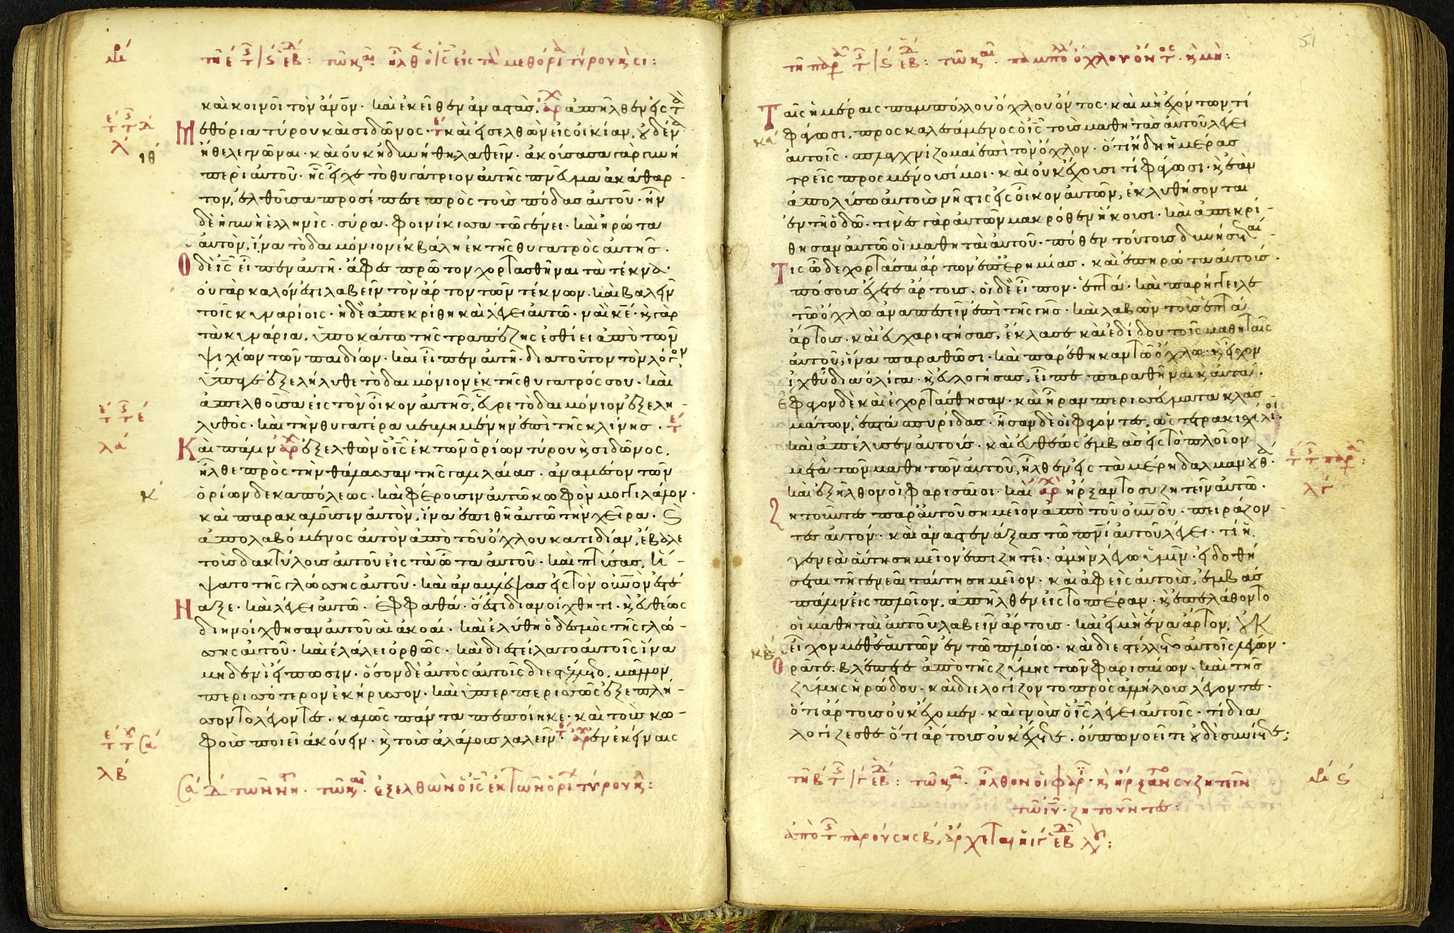 τῇ ε΄ τ Ϛ ἑβ: τῶ κ· ἦλθεν ὁ ις εἰς τὰ μεθόρια τύρου κ σι:
καὶ κοινοῖ τὸν ἄνον· καὶ ἐκεῖθεν ἀναστὰς, ἀπῆλθεν εἰς τὰ
Μεθόρια τύρου καὶ σιδῶνος· καὶ εἰσελθὼν εἰς οἰκίαν, οὐδένα
ιθ
ἤθελε γνῶναι· καὶ οὐκ ἠδυνήθη λαθεῖν· ἀκούσασα γὰρ γυνὴ
περὶ αὐτοῦ· ἧς εἶχε τὸ θυγάτριον αὐτῆς πνεῦμα ἀκάθαρ-
τον, ἐλθοῦσα προσέπεσε πρὸς τοὺς πόδας αὐτοῦ· ἦν
δὲ ἡ γυνὴ ἑλληνὶς· σύρα· φοινίκισσα τῶ γένει· καὶ ἠρώτα
αὐτὸν, ἵνα τὸ δαιμόνιον ἐκβάλη ἐκ τῆς θυγατρὸς αὐτῆς·
Ὁ δὲ ις εἶπεν αὐτῆ· ἄφες πρῶτον χορτασθῆναι τὰ τέκνα·
οὐ γὰρ καλόν ἐστι λαβεῖν τὸν ἄρτον τῶν τέκνων· καὶ βαλεῖν
τοῖς κυναρίοις· ἡ δὲ ἀπεκρίθη καὶ λέγει αὐτῶ· ναὶ κε· κ γὰρ
τὰ κυνάρια, ὑποκάτω τῆς τραπέζης ἐσθίει ἀπὸ τῶν
ψιχίων τῶν παιδίων· καὶ εἶπεν αὐτῆ· διὰ τοῦτον τὸν λόγον
ὕπαγε ἐξελήλυθε τὸ δαιμόνιον ἐκ τῆς θυγατρός σου· καὶ
ἀπελθοῦσα εἰς τὸν οἶκον αὐτῆς, εὗρε τὸ δαιμόνιον ἐξελη-
λυθὸς· καὶ τὴν θυγατέρα βεβλημένην ἐπὶ τῆς κλίνης·
λα
Καὶ πάλιν ἐξελθὼν ὁ ις ἐκ τῶν ὁρίων τύρου κ σιδῶνος,
ἦλθε πρὸς τὴν θάλασσαν τῆς γαλιλαίας· ἀναμέσον τῶν
κ
ὁρίων δεκαπόλεως· καὶ φέρουσιν αὐτῶ κωφὸν μογιλάλον·
καὶ παρακαλοῦσιν αὐτὸν, ἵνα ἐπιθῆ αὐτῶ τὴν χεῖρα· ϗ
ἀπολαβόμενος αὐτὸν ἀπὸ τοῦ ὄχλου κατιδίαν, ἔβαλε
τοὺς δακτύλους αὐτοῦ εἰς τὰ ὦτα αὐτοῦ· καὶ πτύσας, ἥ-
ψατο τῆς γλώσσης αὐτοῦ· καὶ ἀναβλέψας εἰς τὸν οὐνὸν ἐστέ
Ναξε· καὶ λέγει αὐτῶ· ἐφφαθά· ὅ ἐστι διανοίχθητι· κ εὐθέως
διηνοίχθησαν αὐτοῦ αἱ ἀκοαί· καὶ ἐλύθη ὁ δεσμὸς τῆς γλώ-
σσης αὐτοῦ· καὶ ἐλάλει ὀρθῶς· καὶ διεστείλατο αὐτοῖς ἵνα
μηδενὶ εἴπωσιν· ὅσον δὲ αὐτὸς αὐτοῖς διεστέλλετο, μᾶλλον
περισσότερον ἐκήρυσσον· καὶ ὑπερπερισσῶς ἐξεπλή-
σσοντο λέγοντες· καλῶς πάντα πεποίηκε· καὶ τοὺς κω-
λβ
φοὺς ποιεῖ ἀκούειν· κ τοὺς ἀλάλους λαλεῖν· ἐν ἐκείναις
ἐξελθὼν ὁ ις ἐκ τῶν ὁρί τύρου κ:
51
τῇ παρ τ Ϛ ἑβ: τῶ κ· παμπόλλου ὄχλου ὄντος· κ μὴ:
Ταῖς ἡμέραις παμπόλλου ὄχλου ὄντος· καὶ μὴ ἐχόντων τί
κα
φάγωσι, προσκαλεσάμενος ὁ ις τοὺς μαθητὰς αὐτοῦ λέγει
αὐτοῖς· σπλαγχνίζομαι ἐπὶ τὸν ὄχλον· ὅτι ἤδη ἡμέρας
τρεῖς προσμένουσί μοι· καὶ οὐκ ἔχουσι τί φάγωσι· κ ἐὰν
ἀπολύσω αὐτοὺς νήστις εἰς οἶκον αὐτῶν, ἐκλυθήσονται
ἐν τῆ ὁδῶ· τινὲς γὰρ αὐτῶν μακρόθεν ἥκουσι· καὶ ἀπεκρί-
θησαν αὐτῶ οἱ μαθηταὶ αὐτοῦ· πόθεν τούτους δυνήσεταί
Τις ὧδε χορτάσαι ἄρτων ἐπ' ἐρημίας· καὶ ἐπηρώτα αὐτούς·
πόσους ἔχετε ἄρτους· οἱ δὲ εἶπον· ἑπτά· καὶ παρήγγειλε
τῶ ὄχλω ἀναπεσεῖν ἐπὶ τῆς γῆς· καὶ λαβὼν τοὺς ἑπτὰ
ἄρτους· καὶ εὐχαριστήσας, ἔκλασε καὶ ἐδίδου τοῖς μαθηταῖς
αὐτοῦ, ἵνα παραθῶσι· καὶ παρέθηκαν τῶ ὄχλω· κ εἶχον
ἰχθύδια ὀλίγα· κ εὐλογήσας, εἶπε παραθῆναι κ αὐτά·
Ἔφαγον δὲ καὶ ἐχορτάσθησαν· καὶ ἦραν περισσεύματα κλασ
μάτων, ἑπτὰ σπυρίδας· ἦσαν δὲ οἱ φαγόντες, ὡς τετρακισχίλιοι·
καὶ ἀπέλυσεν αὐτούς· καὶ εὐθέως ἐμβὰς εἰς τὸ πλοῖον
μετὰ τῶν μαθητῶν αὐτοῦ, ἦλθεν εἰς τὰ μέρη δαλμανουθά·
λγ
καὶ ἐξῆλθον οἱ φαρισαῖοι· καὶ ἤρξαντο συζητεῖν αὐτῶ·
Ζητοῦντες παρ' αὐτοῦ σημεῖον ἀπὸ τοῦ οὐνοῦ· πειράζον-
τες αὐτόν· καὶ ἀναστενάξας τῶ πνι αὐτοῦ λέγει· τί ἡ
γενεὰ αὕτη σημεῖον ἐπιζητεῖ· ἀμὴν λέγω ὑμῖν· εἰ δοθή
σεται τῆ γενεᾶ ταύτη σημεῖον· καὶ ἀφεὶς αὐτοὺς, ἐμβὰς
πάλιν εἰς πλοῖον, ἀπῆλθεν εἰς τὸ πέραν· κ ἐπελάθοντο
οἱ μαθηταὶ αὐτοῦ λαβεῖν ἄρτους· καὶ εἰ μὴ ἕνα ἄρτον, οὐκ
κβ
εἶχον μεθ' ἑαυτῶν ἐν τῶ πλοίω· καὶ διεστέλλετο αὐτοῖς λέγων·
Ὁρᾶτε· βλέπετε ἀπὸ τῆς ζύμης τῶν φαρισαίων· καὶ τῆς
ζύμης ἡρώδου· καὶ διελογίζοντο πρὸς ἀλλήλους λέγοντες·
ὅτι ἄρτους οὐκ ἔχομεν· καὶ γνοὺς ὁ ις λέγει αὐτοῖς· τί δια
λογίζεσθε ὅτι ἄρτους οὐκ ἔχετε· οὔπω νοεῖτε οὐδὲ συνίετε;
τῇ β τ ἑβ: τῶ κ· ἦλθον οἱ φαρ· κ ἤρξαντο συζητεῖν
τῶ ιυ· ζητοῦντες: